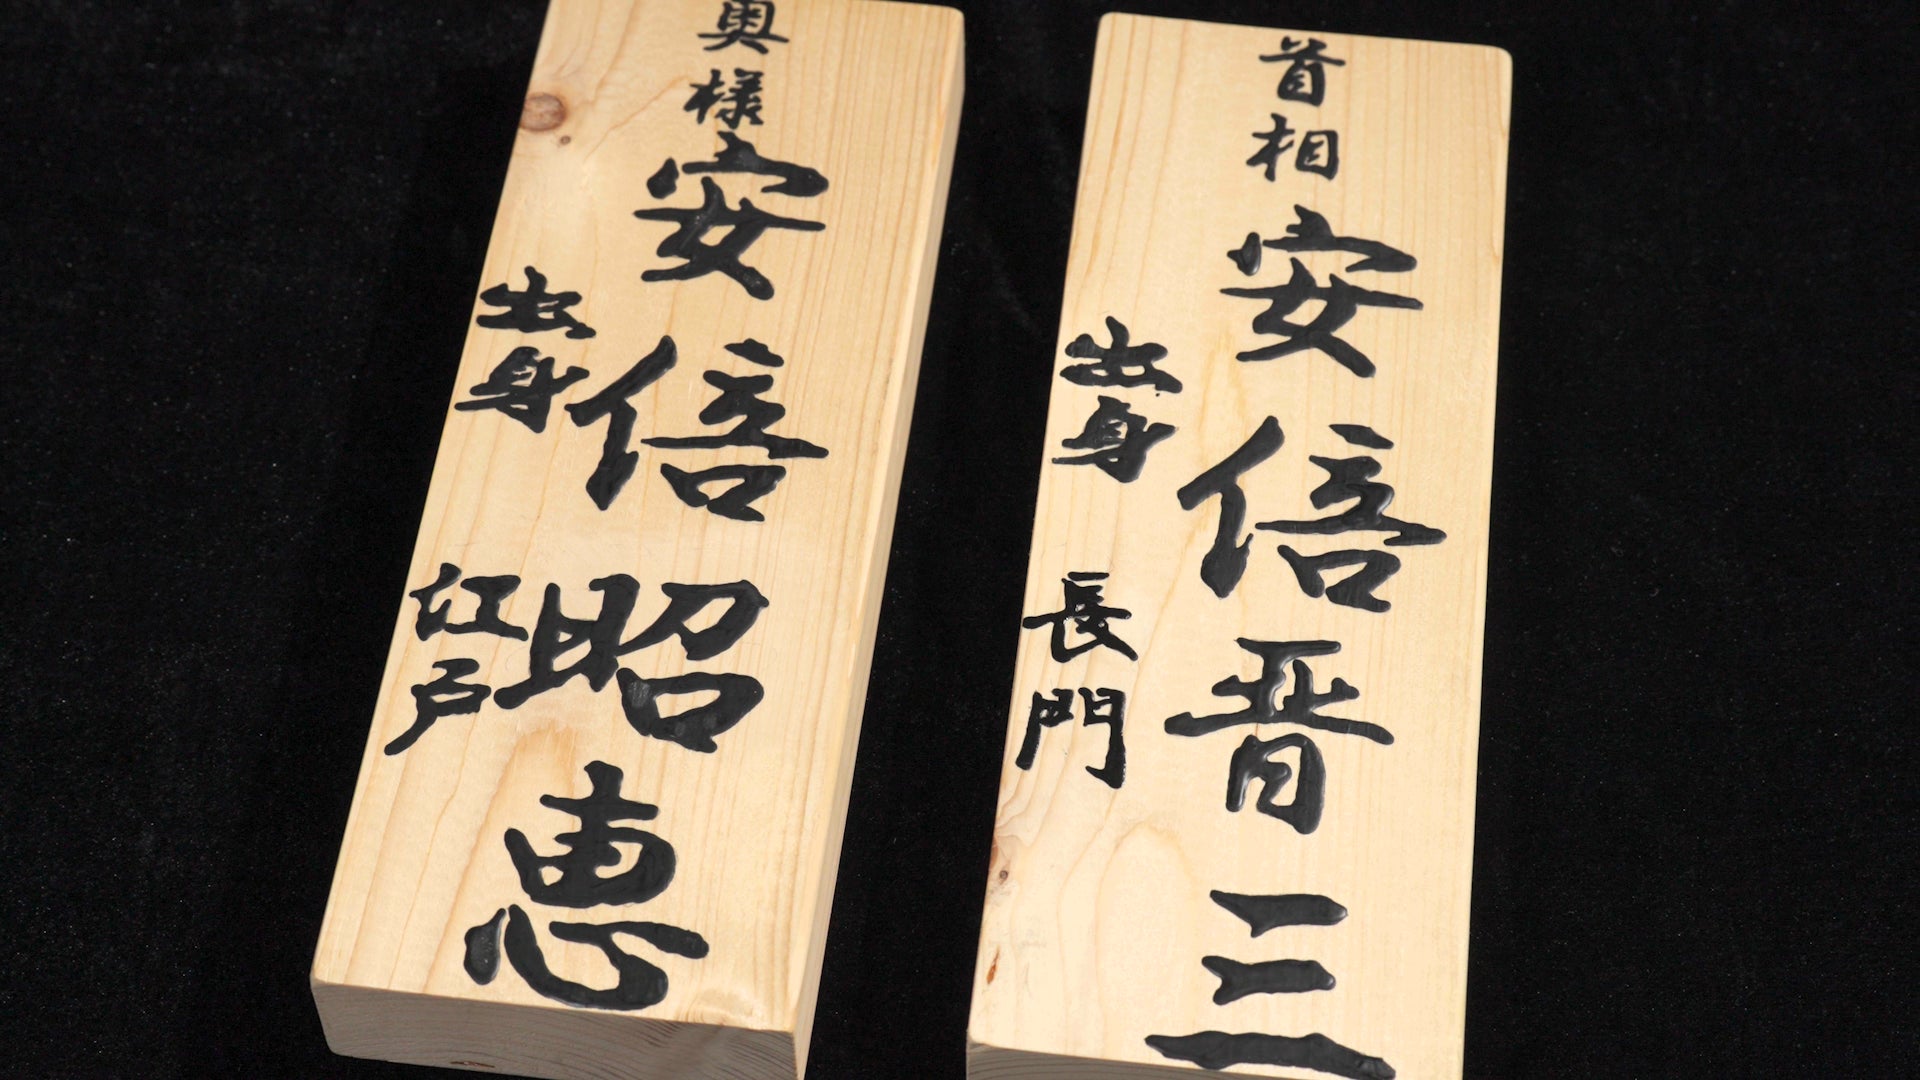 首相
安倍晋三
出身
長門
奥様
安倍昭恵
出身
江戸